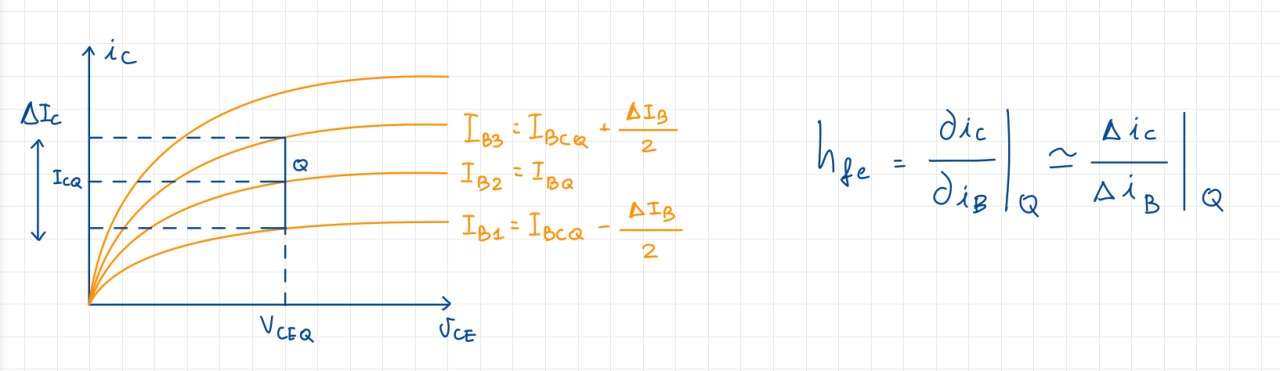 i_C
ΔI_C
I_CQ
Q
V_CEQ
v_CE
I_B3 = I_BCQ + ΔI_B/2
I_B2 = I_BQ
I_B1 = I_BCQ - ΔI_B/2
h_fe = ∂i_C/∂i_B |_Q ≃ Δi_C/Δi_B |_Q